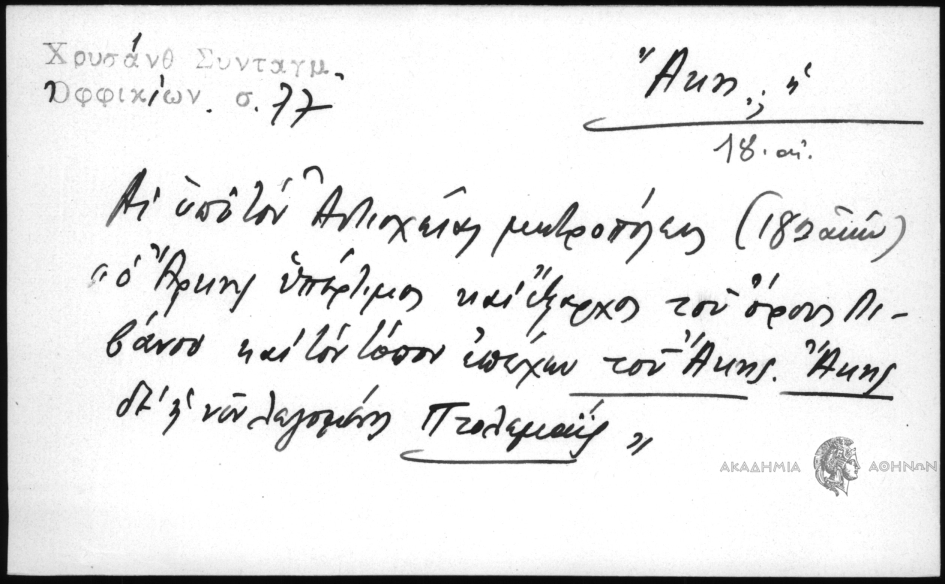 Χρυσάνθ Συνταγμ.
Ὀφφικίων. σ. 77
Ἄκη, ἡ
18. αἰ.
Αἱ ὑπὸ τὸν Ἀντιοχείας μητροπόλεις (18ου αἰῶν)
"ὁ Ἄρκης ὑπέρτιμος καὶ ἔξαρχος τοῦ ὄρους Λι-
βάνου καὶ τὸν τόπον ἐπέχων τοῦ Ἄκης. Ἄκης
δὲ ἡ νῦν λεγομένη Πτολεμαΐς"
ΑΚΑΔΗΜΙΑ ΑΘΗΝΩΝ